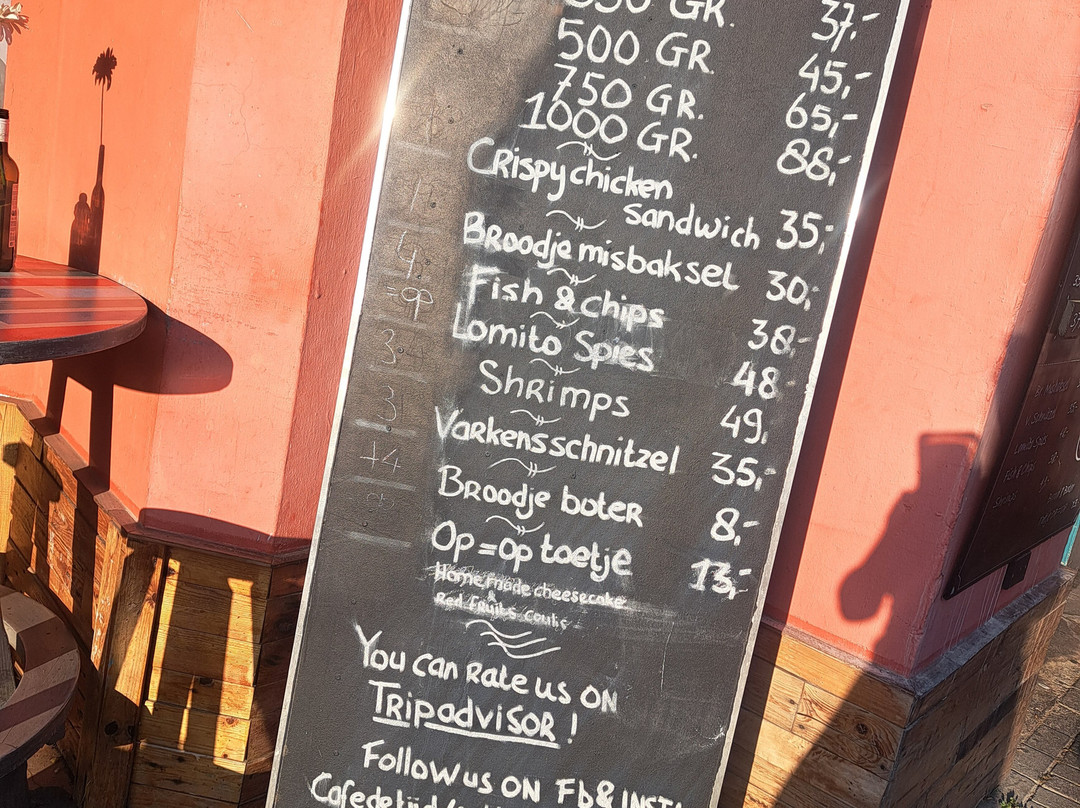 GR. 37,-
500 GR. 45,-
750 GR. 65,-
1000 GR. 88,-
Crispy chicken
sandwich 35,-
Broodje misbaksel 30,-
Fish & chips 38,-
Lomito Spies 48
Shrimps 49,
Varkensschnitzel 35,-
Broodje boter 8,-
Op=op toetje 13,-
Homemade cheesecake
&
Red fruits coulis
You can Rate us on
Tripadvisor!
Follow us on Fb & INSTA
4
=op
3
3
+4